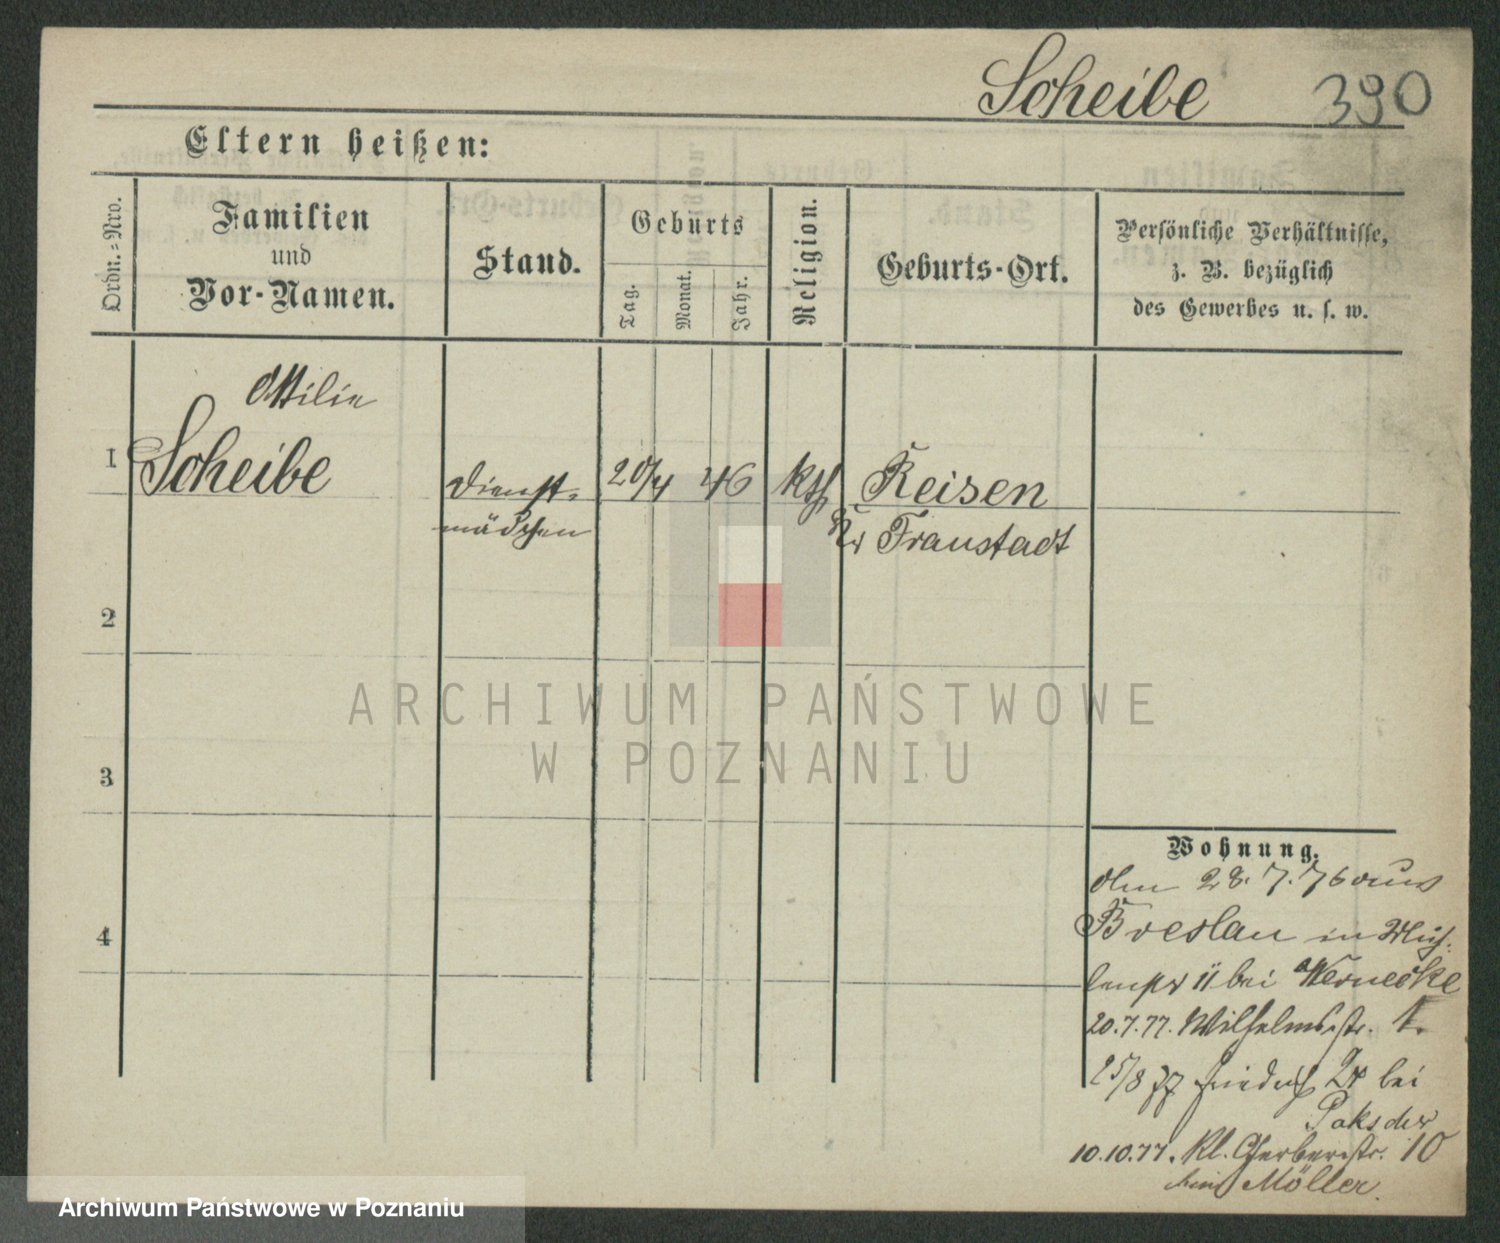 Scheibe 390
Eltern heißen:
Ordn.=Nro.
Familien
und
Vor-Namen.
Stand.
Geburts
Tag.
Monat.
Jahr.
Religion.
Geburts-Ort.
Persönliche Verhältnisse,
z. B. bezüglich
des Gewerbes u. s. w.
Ottilie
1 Scheibe Dienst- 20/4 46 kth Reisen
mädchen Kr Fraustadt
2
3
4
Wohnung.
Am 28.7.76 aus
Breslau in Müh-
lenstr 11 bei Wernecke
20.7.77. Wilhelmsstr. 1.
25/8 77 Friedrich 24 bei
10.10.77. Kl. Gerberstr. 10
beim Möller.
ARCHIWUM PAŃSTWOWE
W POZNANIU
Archiwum Państwowe w Poznaniu